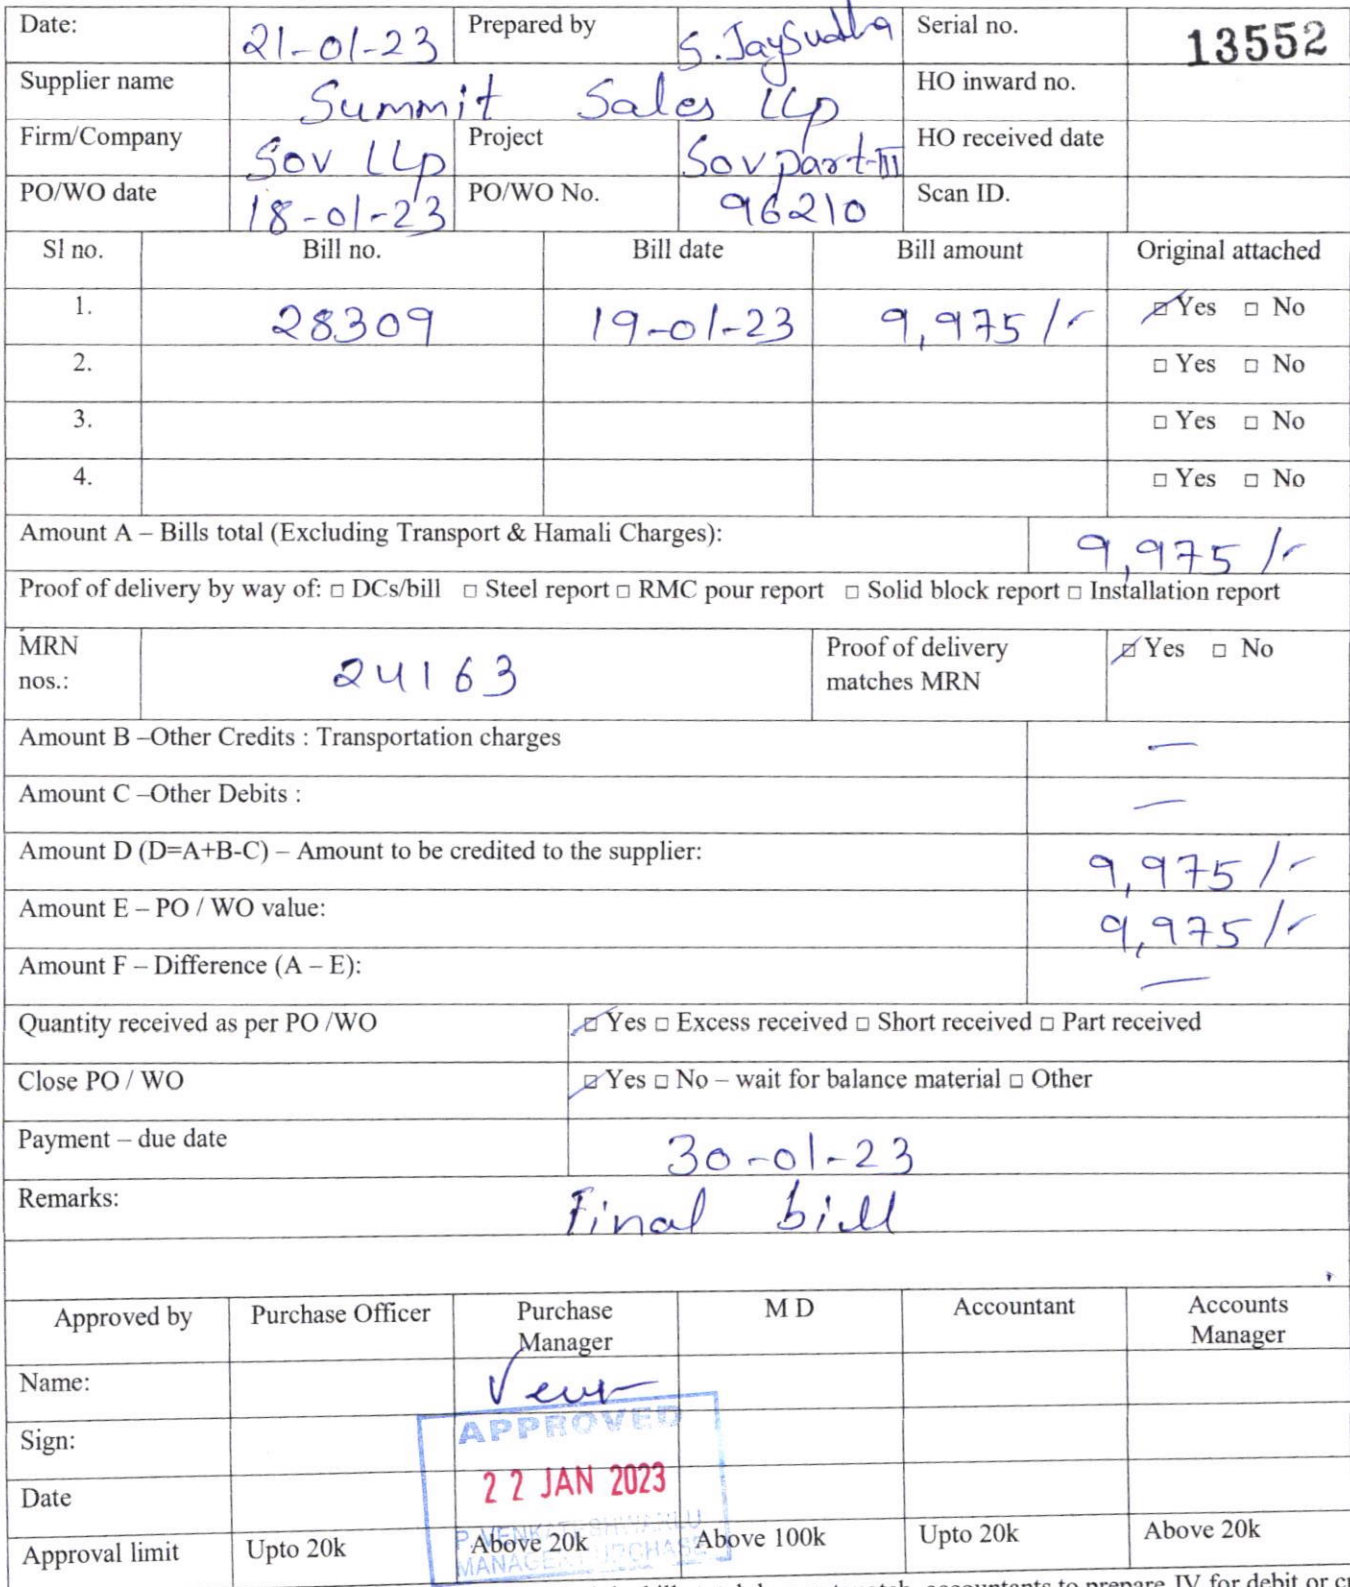 Date: 21-01-23 Prepared by S. JaySudha Serial no. 13552
Supplier name Summit Sales LLP HO inward no.
Firm/Company Sov LLP Project Sov part-III HO received date
PO/WO date 18-01-23 PO/WO No. 96210 Scan ID.
Sl no. Bill no. Bill date Bill amount Original attached
1. 28309 19-01-23 9,975/- ☑ Yes □ No
2. □ Yes □ No
3. □ Yes □ No
4. □ Yes □ No
Amount A – Bills total (Excluding Transport & Hamali Charges): 9,975/-
Proof of delivery by way of: □ DCs/bill □ Steel report □ RMC pour report □ Solid block report □ Installation report
MRN nos.: 24163 Proof of delivery matches MRN ☑ Yes □ No
Amount B –Other Credits : Transportation charges —
Amount C –Other Debits : —
Amount D (D=A+B-C) – Amount to be credited to the supplier: 9,975/-
Amount E – PO / WO value: 9,975/-
Amount F – Difference (A – E): —
Quantity received as per PO /WO ☑ Yes □ Excess received □ Short received □ Part received
Close PO / WO ☑ Yes □ No – wait for balance material □ Other
Payment – due date 30-01-23
Remarks: Final bill
Approved by Purchase Officer Purchase Manager M D Accountant Accounts Manager
Name:
Sign: APPROVED
Date 22 JAN 2023
P. VENKATESHWARLU
MANAGER PURCHASE
Approval limit Upto 20k Above 20k Above 100k Upto 20k Above 20k
accountants to prepare JV for debit or